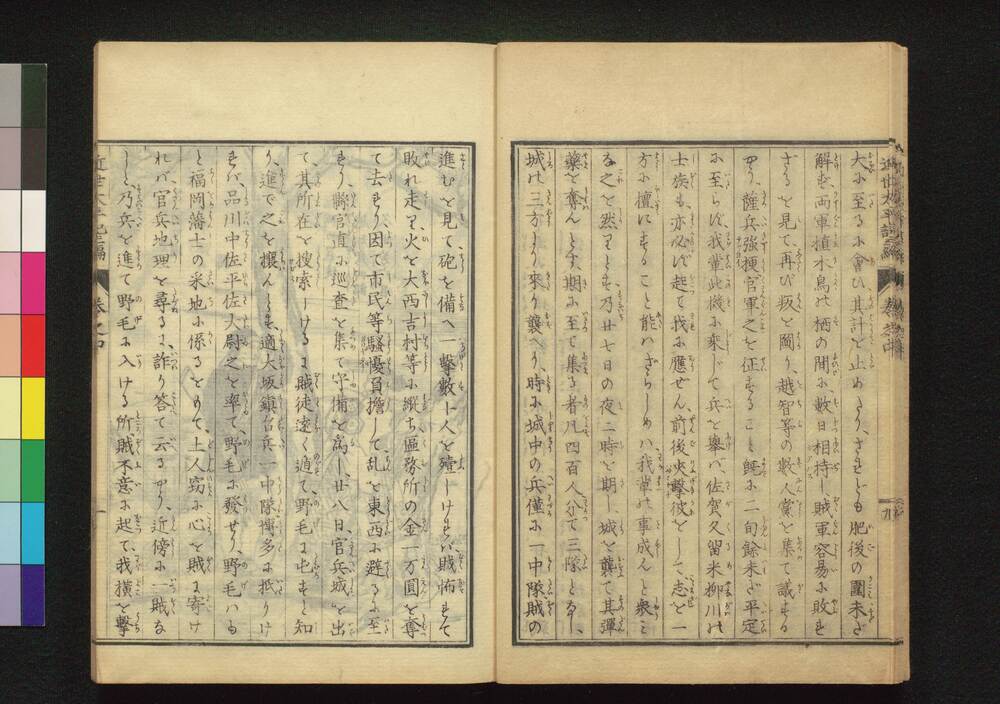 大に至るに會ひ其計を止めたり、されども肥後の圍未だ
解せず、両軍植木鳥の栖の間に數日相持し賊軍容易に敗せ
ざるを見て、再び叛を圖り、越智等の數人黨を集て議する
やう、薩兵強梗官軍之を征すること既に一旬餘未だ平定
に至らず、我輩此機に乗じて兵を擧げ、佐賀久留米柳川の
士族も亦必ず起て我に應ぜん、前後夾撃彼をして志を一
方に擅にすること能はざらしめば我輩の事成んと衆こ
な之を然りとす、乃廿七日の夜二時を期し城を襲て其彈
藥を奪んとす、期に至て集る者凡四百人分て三隊となし、
城の三方より來り襲へり、時に城中の兵僅に一中隊賊の
進むを見て砲を備へ一撃數十人を殪しければ賊怖れて
敗れ走り火を大西吉村等に縱ち區務所の金一万圓を奪
て去れり因て市民等騒優負擔して乱を東西に避るに至
れり、縣官直に巡査を集て守備を為し、廿八日、官兵城を出
て、其所在を捜索しけるに賊徒遠く遁て野毛に屯すと知
り、進で之を攘んとす、適大坂鎮台兵一中隊博多に抵りけ
れば、品川中佐平佐大尉之を率て、野毛に發せり、野毛はも
と福岡藩士の采地に係るをもて、土人窃に心を賊に寄け
れば、官兵地理を尋るに、詐り答て云るやう、近傍に一賊な
しと、乃兵を進て野毛に入ける所賊不意に起て、我横を撃
近世太平記編
巻之中
九